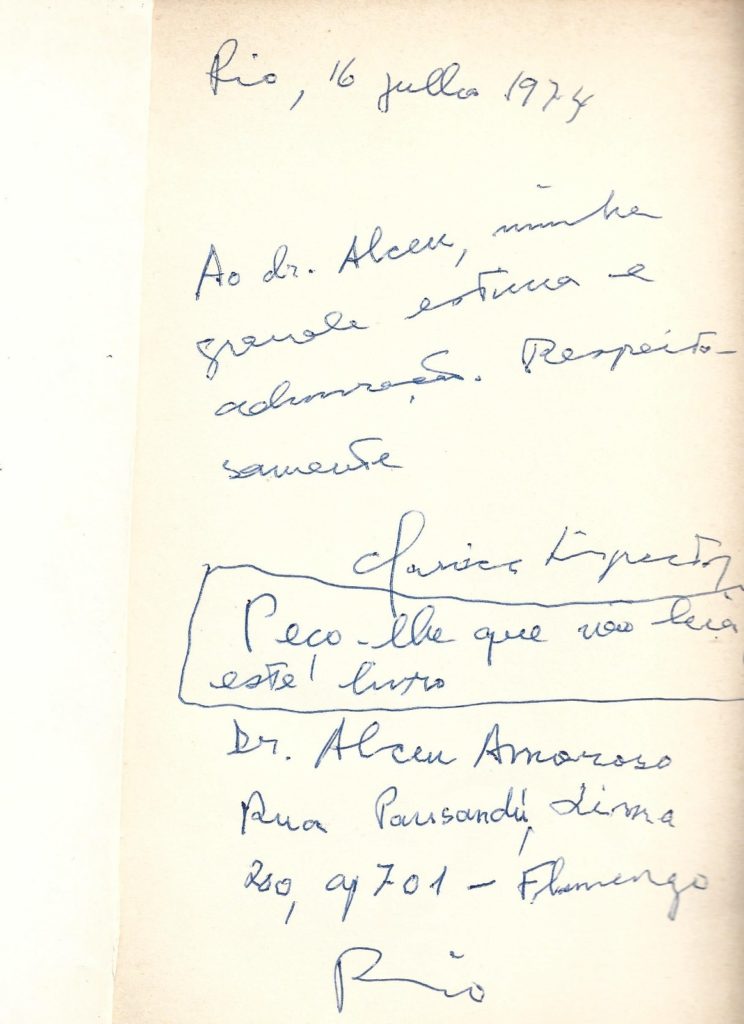 Rio, 16 julho 1974
Ao dr. Alceu, minha
grande estima e
admiração. Respeito-
samente
Clarice Lispector
Peço-lhe que não leia
este livro
Dr. Alceu Amoroso
Rua Paisandú, Lima
200, ap 701 - Flamengo
Rio